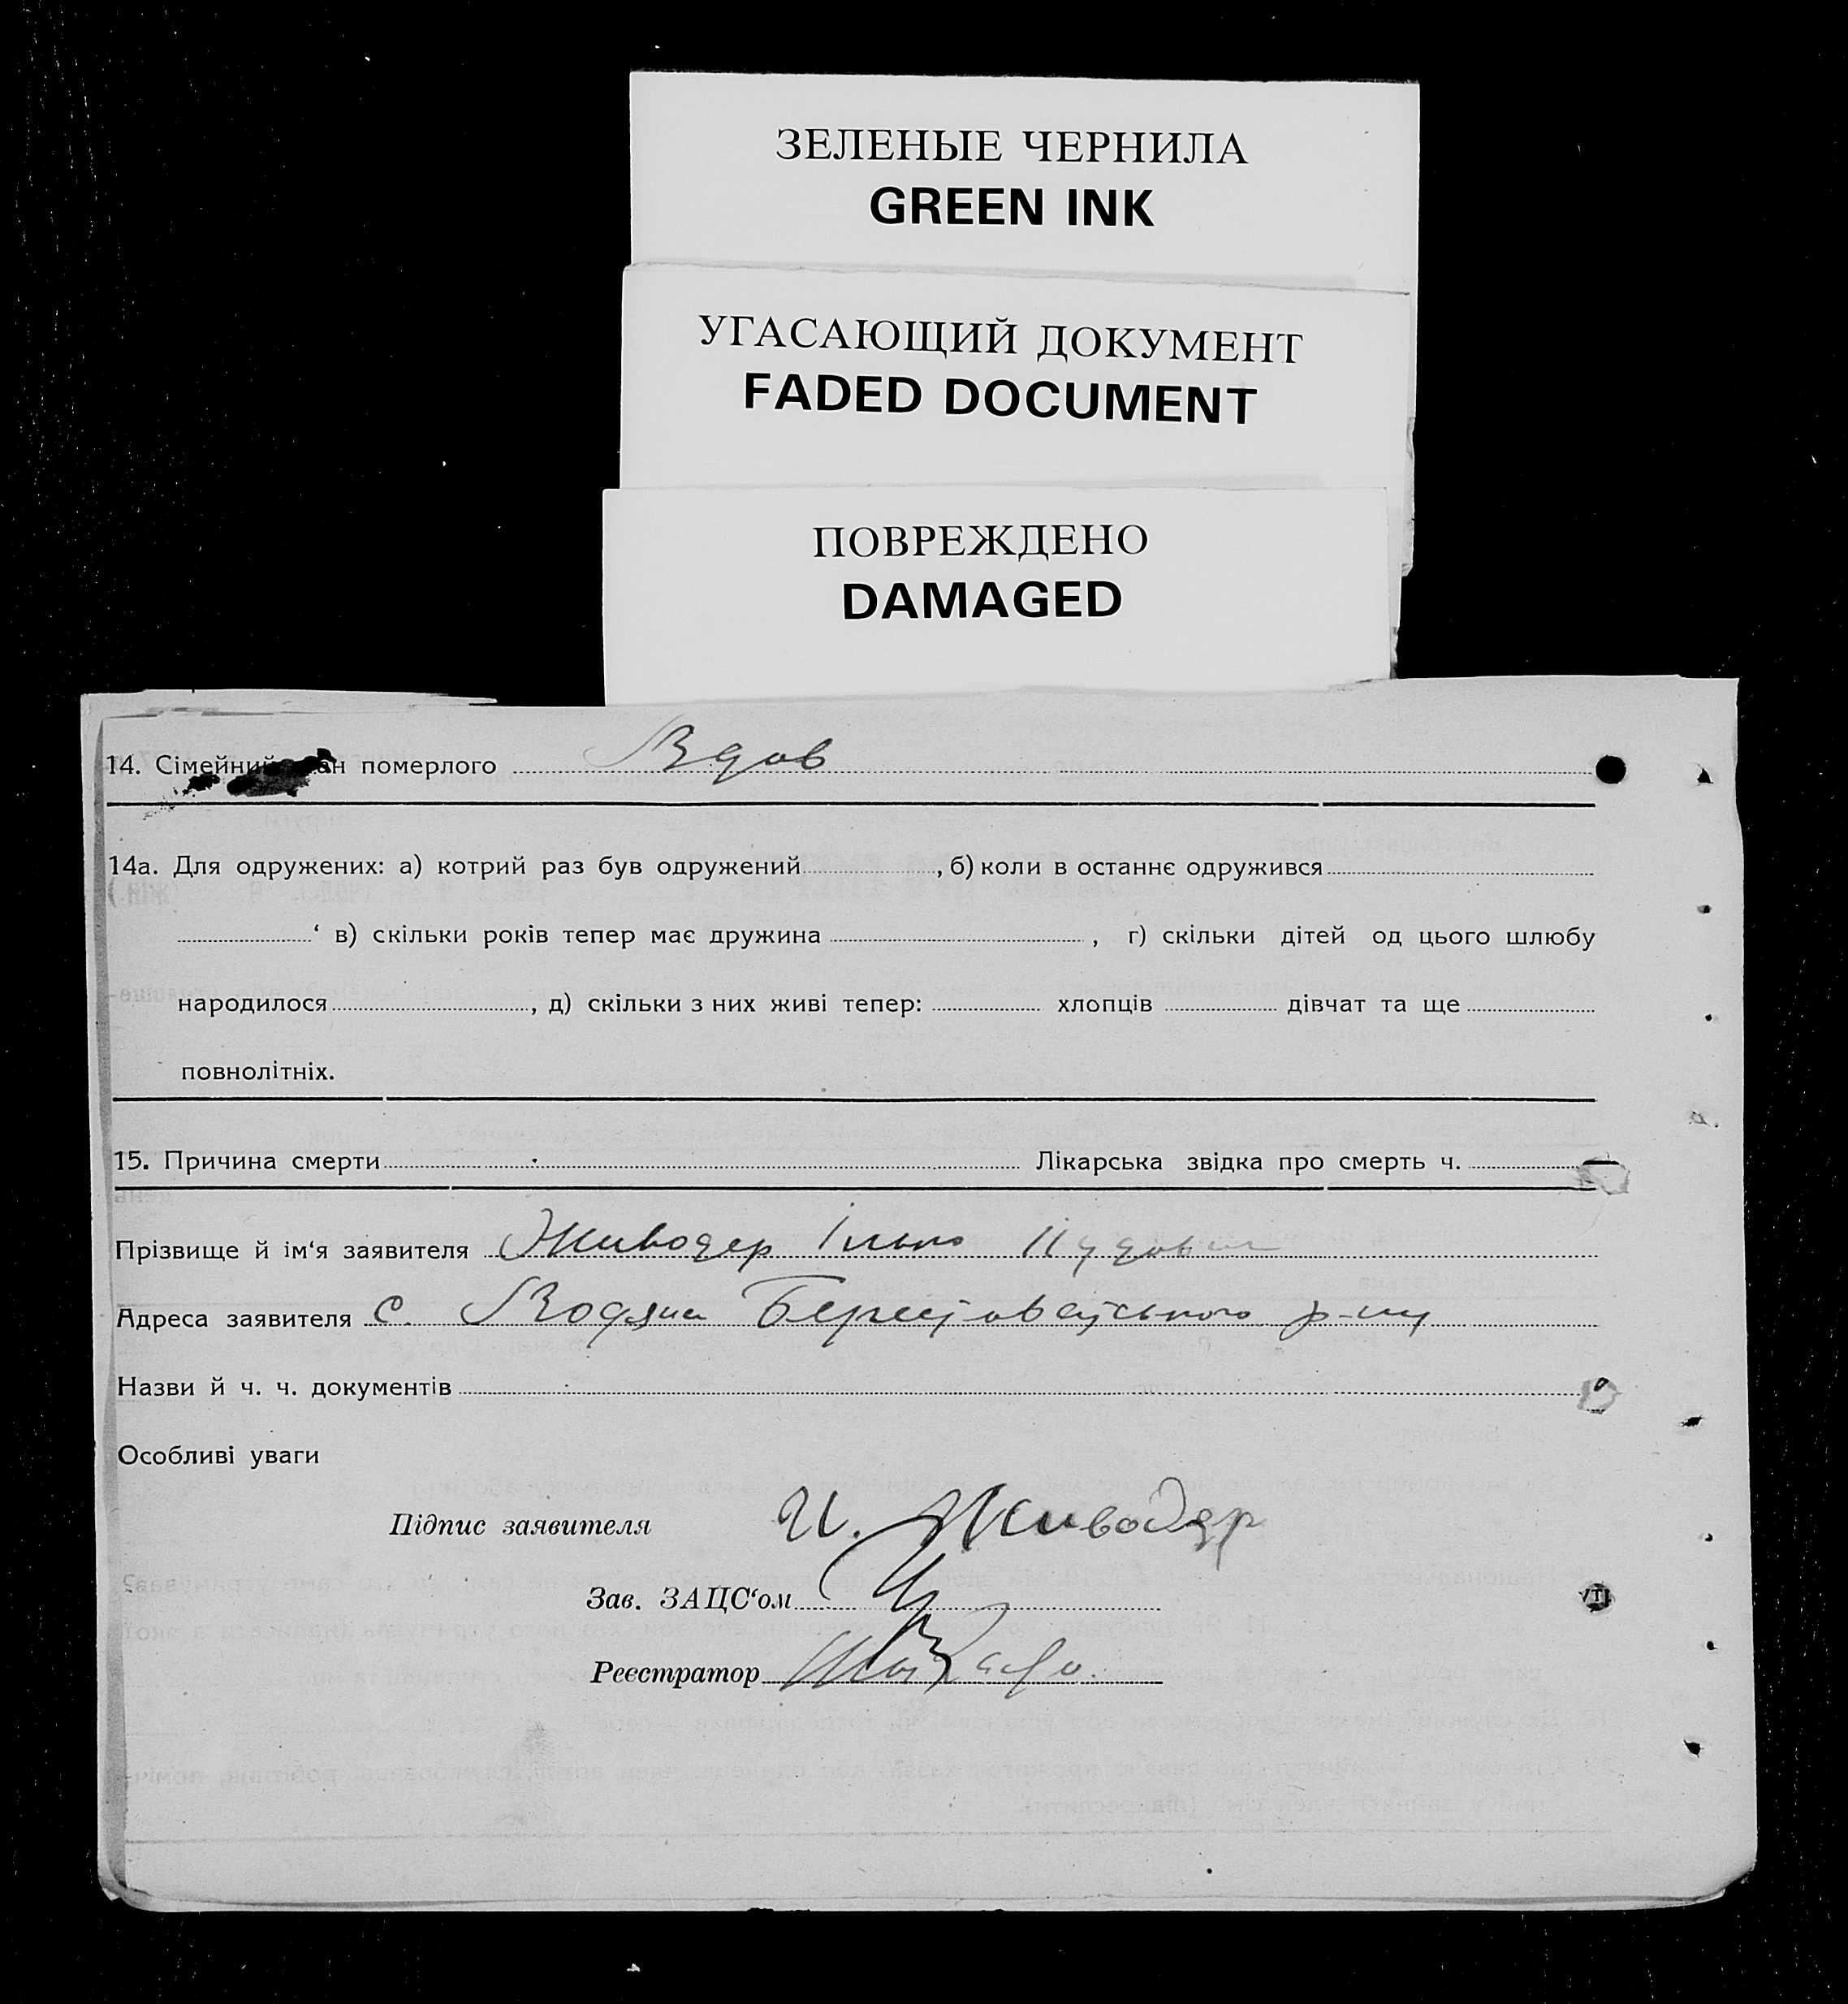 ЗЕЛЕНЫЕ ЧЕРНИЛА
GREEN INK
УГАСАЮЩИЙ ДОКУМЕНТ
FADED DOCUMENT
ПОВРЕЖДЕНО
DAMAGED
14. Сімейний померлого Вдов
14а. Для одружених: а) котрий раз був одружений , б) коли в останнє одружився
‘ в) скільки років тепер має дружина , г) скільки дітей од цього шлюбу
народилося , д) скільки з них живі тепер: хлопців дівчат та ще
повнолітніх.
15. Причина смерти Лікарська звідка про смерть ч. —
Прізвище й ім‘я заявителя Живодер Ілько
Адреса заявителя с. Водяна р-ну
Назви й ч. ч. документів
Особливі уваги
Підпис заявителя И. Живодер
Зав. ЗАЦС‘ом
Реєстратор